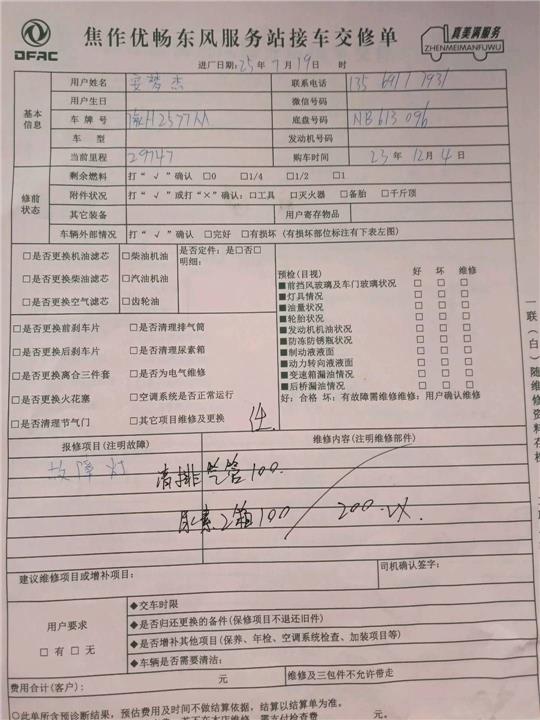 DFAC
焦作优畅东风服务站接车交修单
真美满服务
ZHENMEIMANFUWU
进厂日期: 25 年 7 月 19 日 时
基本信息
用户姓名 安梦杰 联系电话
用户生日 微信号码
车牌号 豫H2377M 底盘号码 NB613096
车型 发动机号码
当前里程 29747 购车时间 23 年 12 月 4 日
修前状态
剩余燃料 打“√”确认 □0 □1/4 □1/2 □1
附件状况 打“√”或打“×”确认: □工具 □灭火器 □备胎 □千斤顶
其它装备 用户寄存物品
车辆外部情况 打“√”确认 □完好 □有损坏 (有损坏部位标注有下表左图)
□是否更换机油滤芯 □柴油机油 是否定件: 是□否□
明细:
□是否更换柴油滤芯 □汽油机油
□是否更换空气滤芯 □齿轮油
预检(目视) 好 坏 维修
■前挡风玻璃及车门玻璃状况 □ □ □
■灯具情况 □ □ □
■油量状况 □ □ □
■轮胎状况 □ □ □
■发动机机油状况 □ □ □
■防冻防锈瓶状况 □ □ □
■制动液液面 □ □ □
■动力转向液液面 □ □ □
■变速箱漏油情况 □ □ □
■后桥漏油情况 □ □ □
好: 合格 坏: 有故障需维修维修: 用户确认维修
□是否更换前刹车片 □是否清理排气筒
□是否更换后刹车片 □是否清理尿素箱
□是否更换离合三件套 □是否为电气维修
□是否更换火花塞 □空调系统是否正常运行
□是否清理节气门 □其它项目维修及更换
报修项目(注明故障) 维修内容(注明维修部件)
故障灯
清排气管100.
尿素箱100
200
建议维修项目或增补项目:
司机确认签字:
用户要求
□有 □无
◆交车时限
◆是否归还更换的备件(保修项目不退还旧件)
◆是否增补其他项目(保养、年检、空调系统检查、加装项目等)
◆车辆是否需要清洁:
费用合计(客户): 元 维修及三包件不允许带走
○此单所含预诊断结果, 预估费用及时间不做结算依据, 结算以结算单为准。
一联(白)随维修资料存档